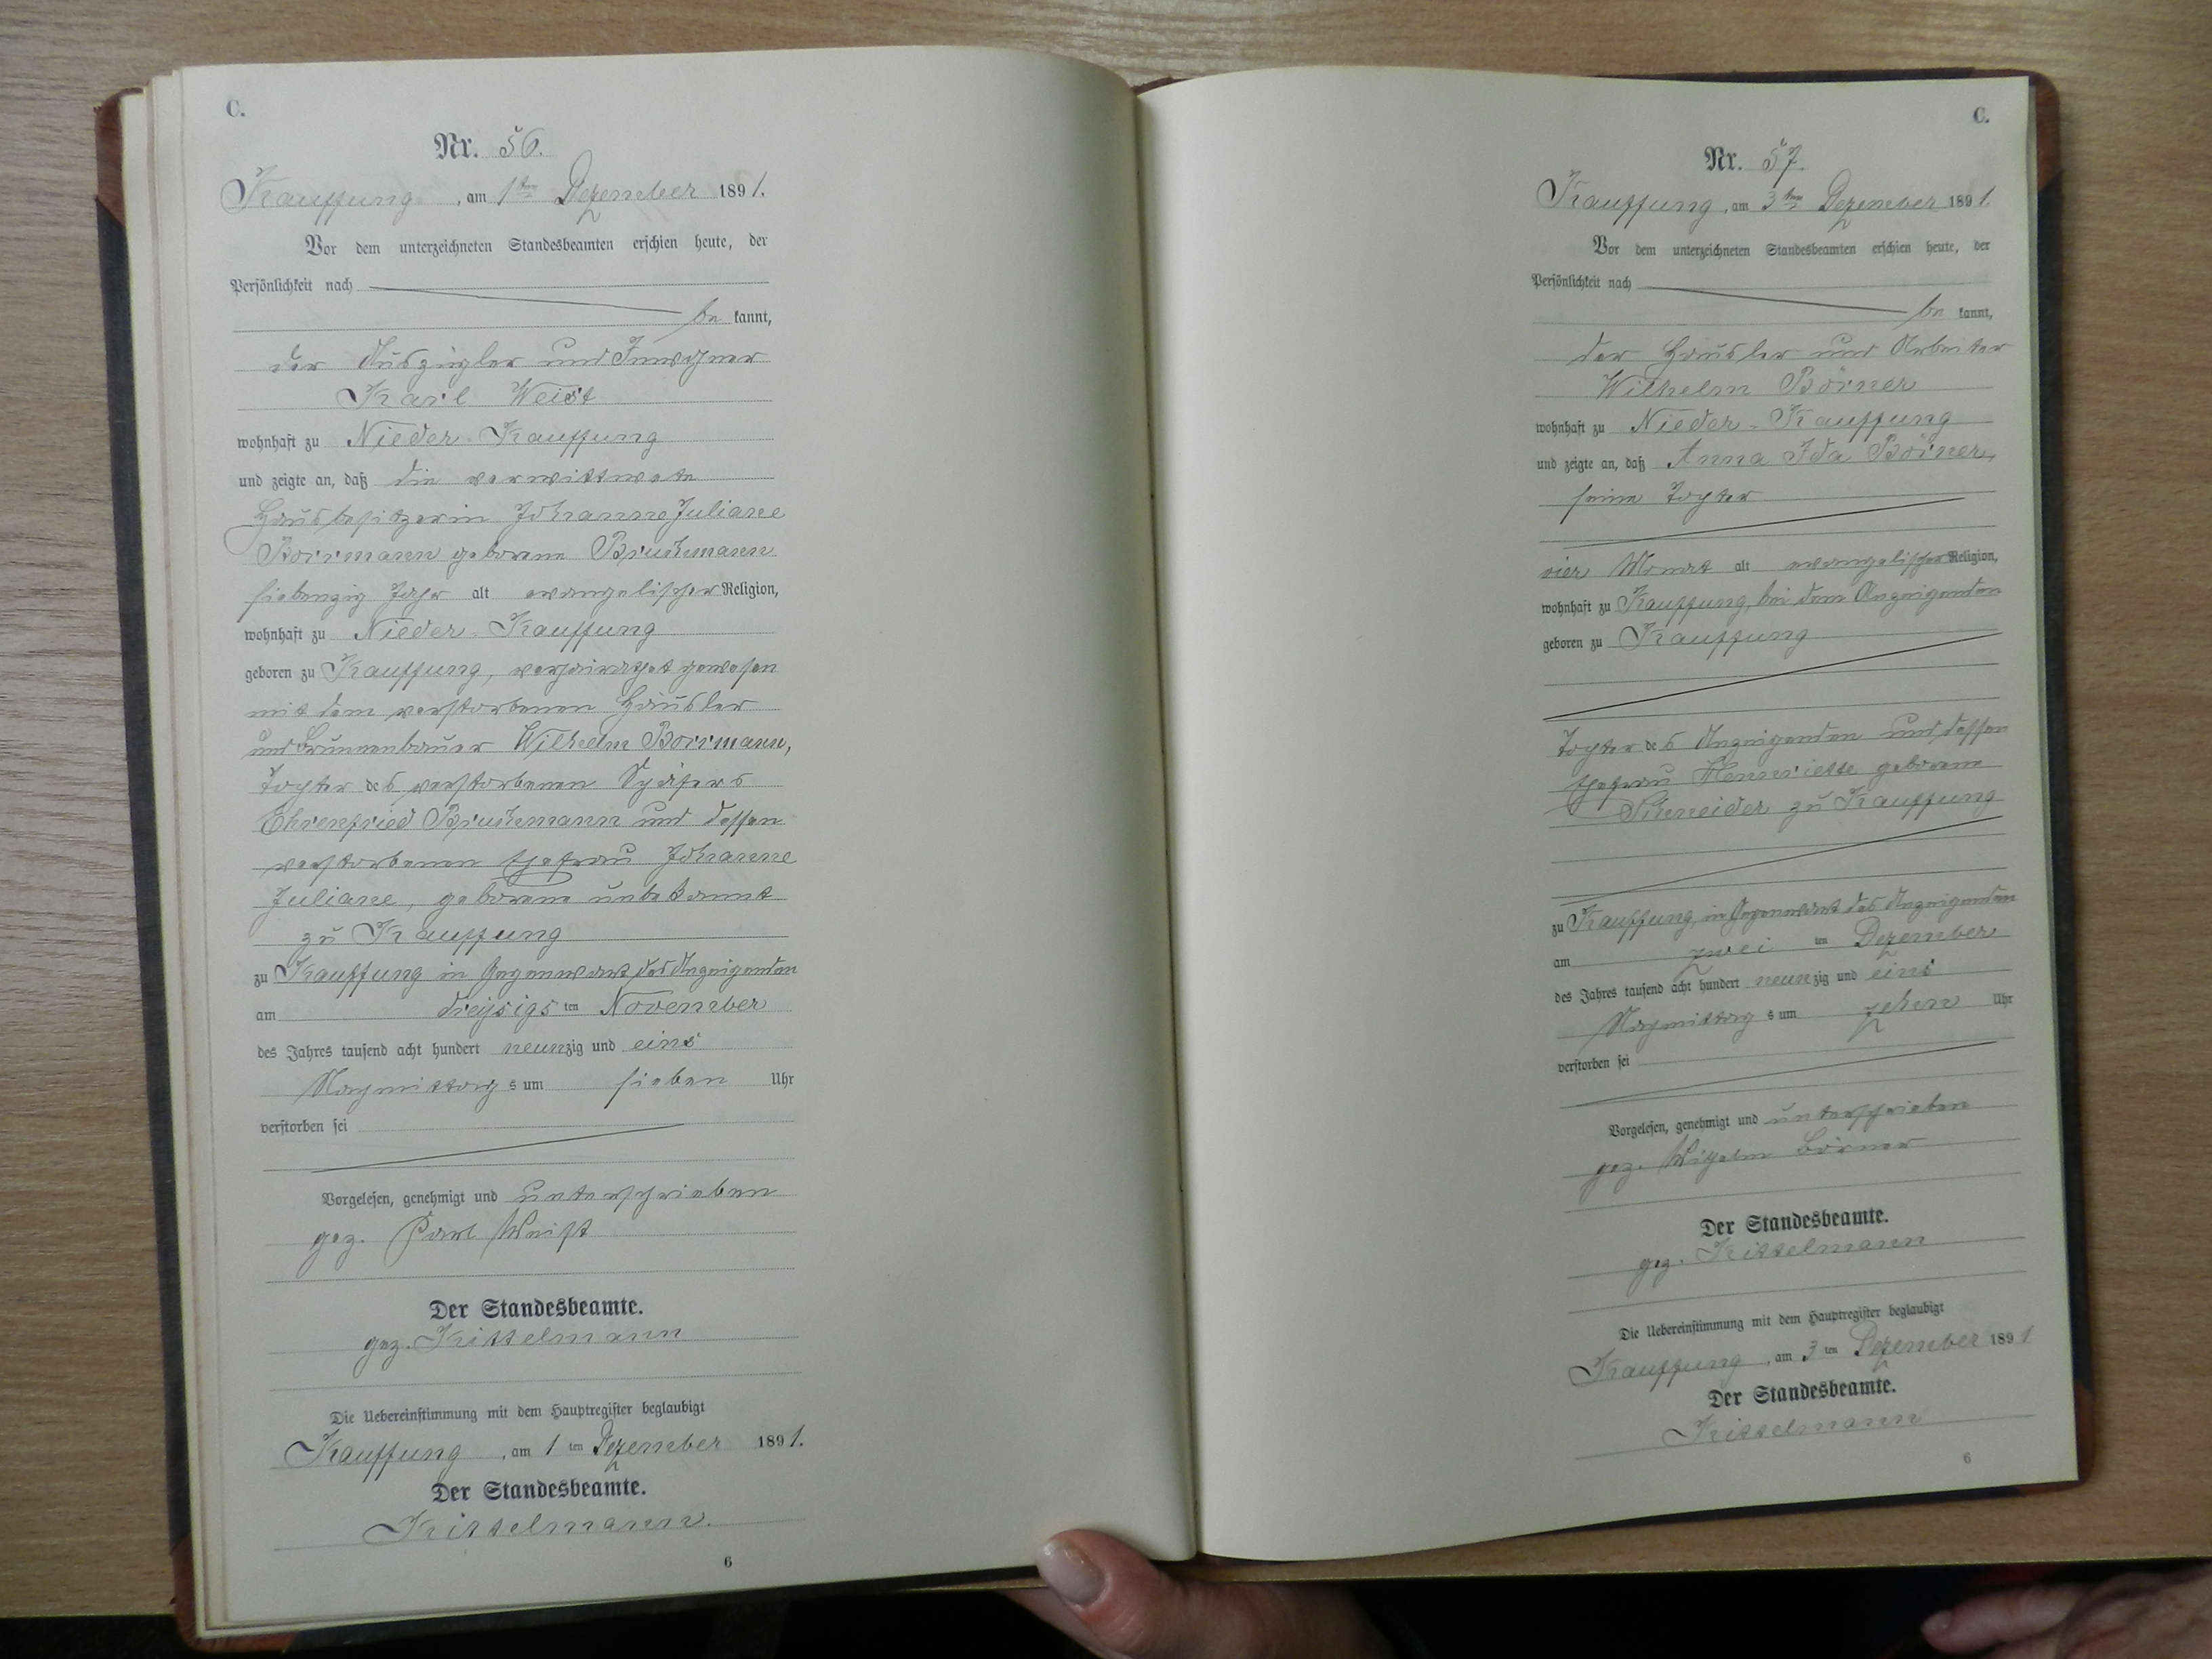 C.
Nr. 56.
Kauffung, am 1ten Dezember 1891.
Vor dem unterzeichneten Standesbeamten erschien heute, der
Persönlichkeit nach
bekannt,
der Auszügler und Inwohner
Karl Weist
wohnhaft zu Nieder-Kauffung
und zeigte an, daß die verwittwete
Hausbesitzerin Johanne Juliane
Borrmann geborene Bruchmann
siebenzig Jahr alt evangelischer Religion,
wohnhaft zu Nieder-Kauffung
geboren zu Kauffung, verheirathet gewesen
mit dem verstorbenen Häusler
und Brunnenbauer Wilhelm Borrmann,
Tochter des verstorbenen Schäfers
Ehrenfried Bruchmann und dessen
verstorbenen Ehefrau Johanne
Juliane, geborene unbekannt
zu Kauffung
zu Kauffung in Gegenwart des Anzeigenden
am dreißigsten November
des Jahres tausend acht hundert neunzig und eins
Nachmittags um sieben Uhr
verstorben sei
Vorgelesen, genehmigt und unterschrieben
gez. Karl Weist
Der Standesbeamte.
gez. Kittelmann
Die Uebereinstimmung mit dem Hauptregister beglaubigt
Kauffung, am 1ten Dezember 1891.
Der Standesbeamte.
Kittelmann.
6
C.
Nr. 57.
Kauffung, am 3ten Dezember 1891.
Vor dem unterzeichneten Standesbeamten erschien heute, der
Persönlichkeit nach
bekannt,
der Häusler und Arbeiter
Wilhelm Börner
wohnhaft zu Nieder-Kauffung
und zeigte an, daß Anna Ida Börner,
seine Tochter
vier Monat alt evangelischer Religion,
wohnhaft zu Kauffung, bei dem Anzeigenden
geboren zu Kauffung
Tochter des Anzeigenden und dessen
Ehefrau Henriette geborene
Schneider zu Kauffung
zu Kauffung, in Gegenwart des Anzeigenden
am zweiten Dezember
des Jahres tausend acht hundert neunzig und eins
Nachmittags um zehn Uhr
verstorben sei
Vorgelesen, genehmigt und unterschrieben
gez. Wilhelm Börner
Der Standesbeamte.
gez. Kittelmann
Die Uebereinstimmung mit dem Hauptregister beglaubigt
Kauffung, am 3ten Dezember 1891
Der Standesbeamte.
Kittelmann
6